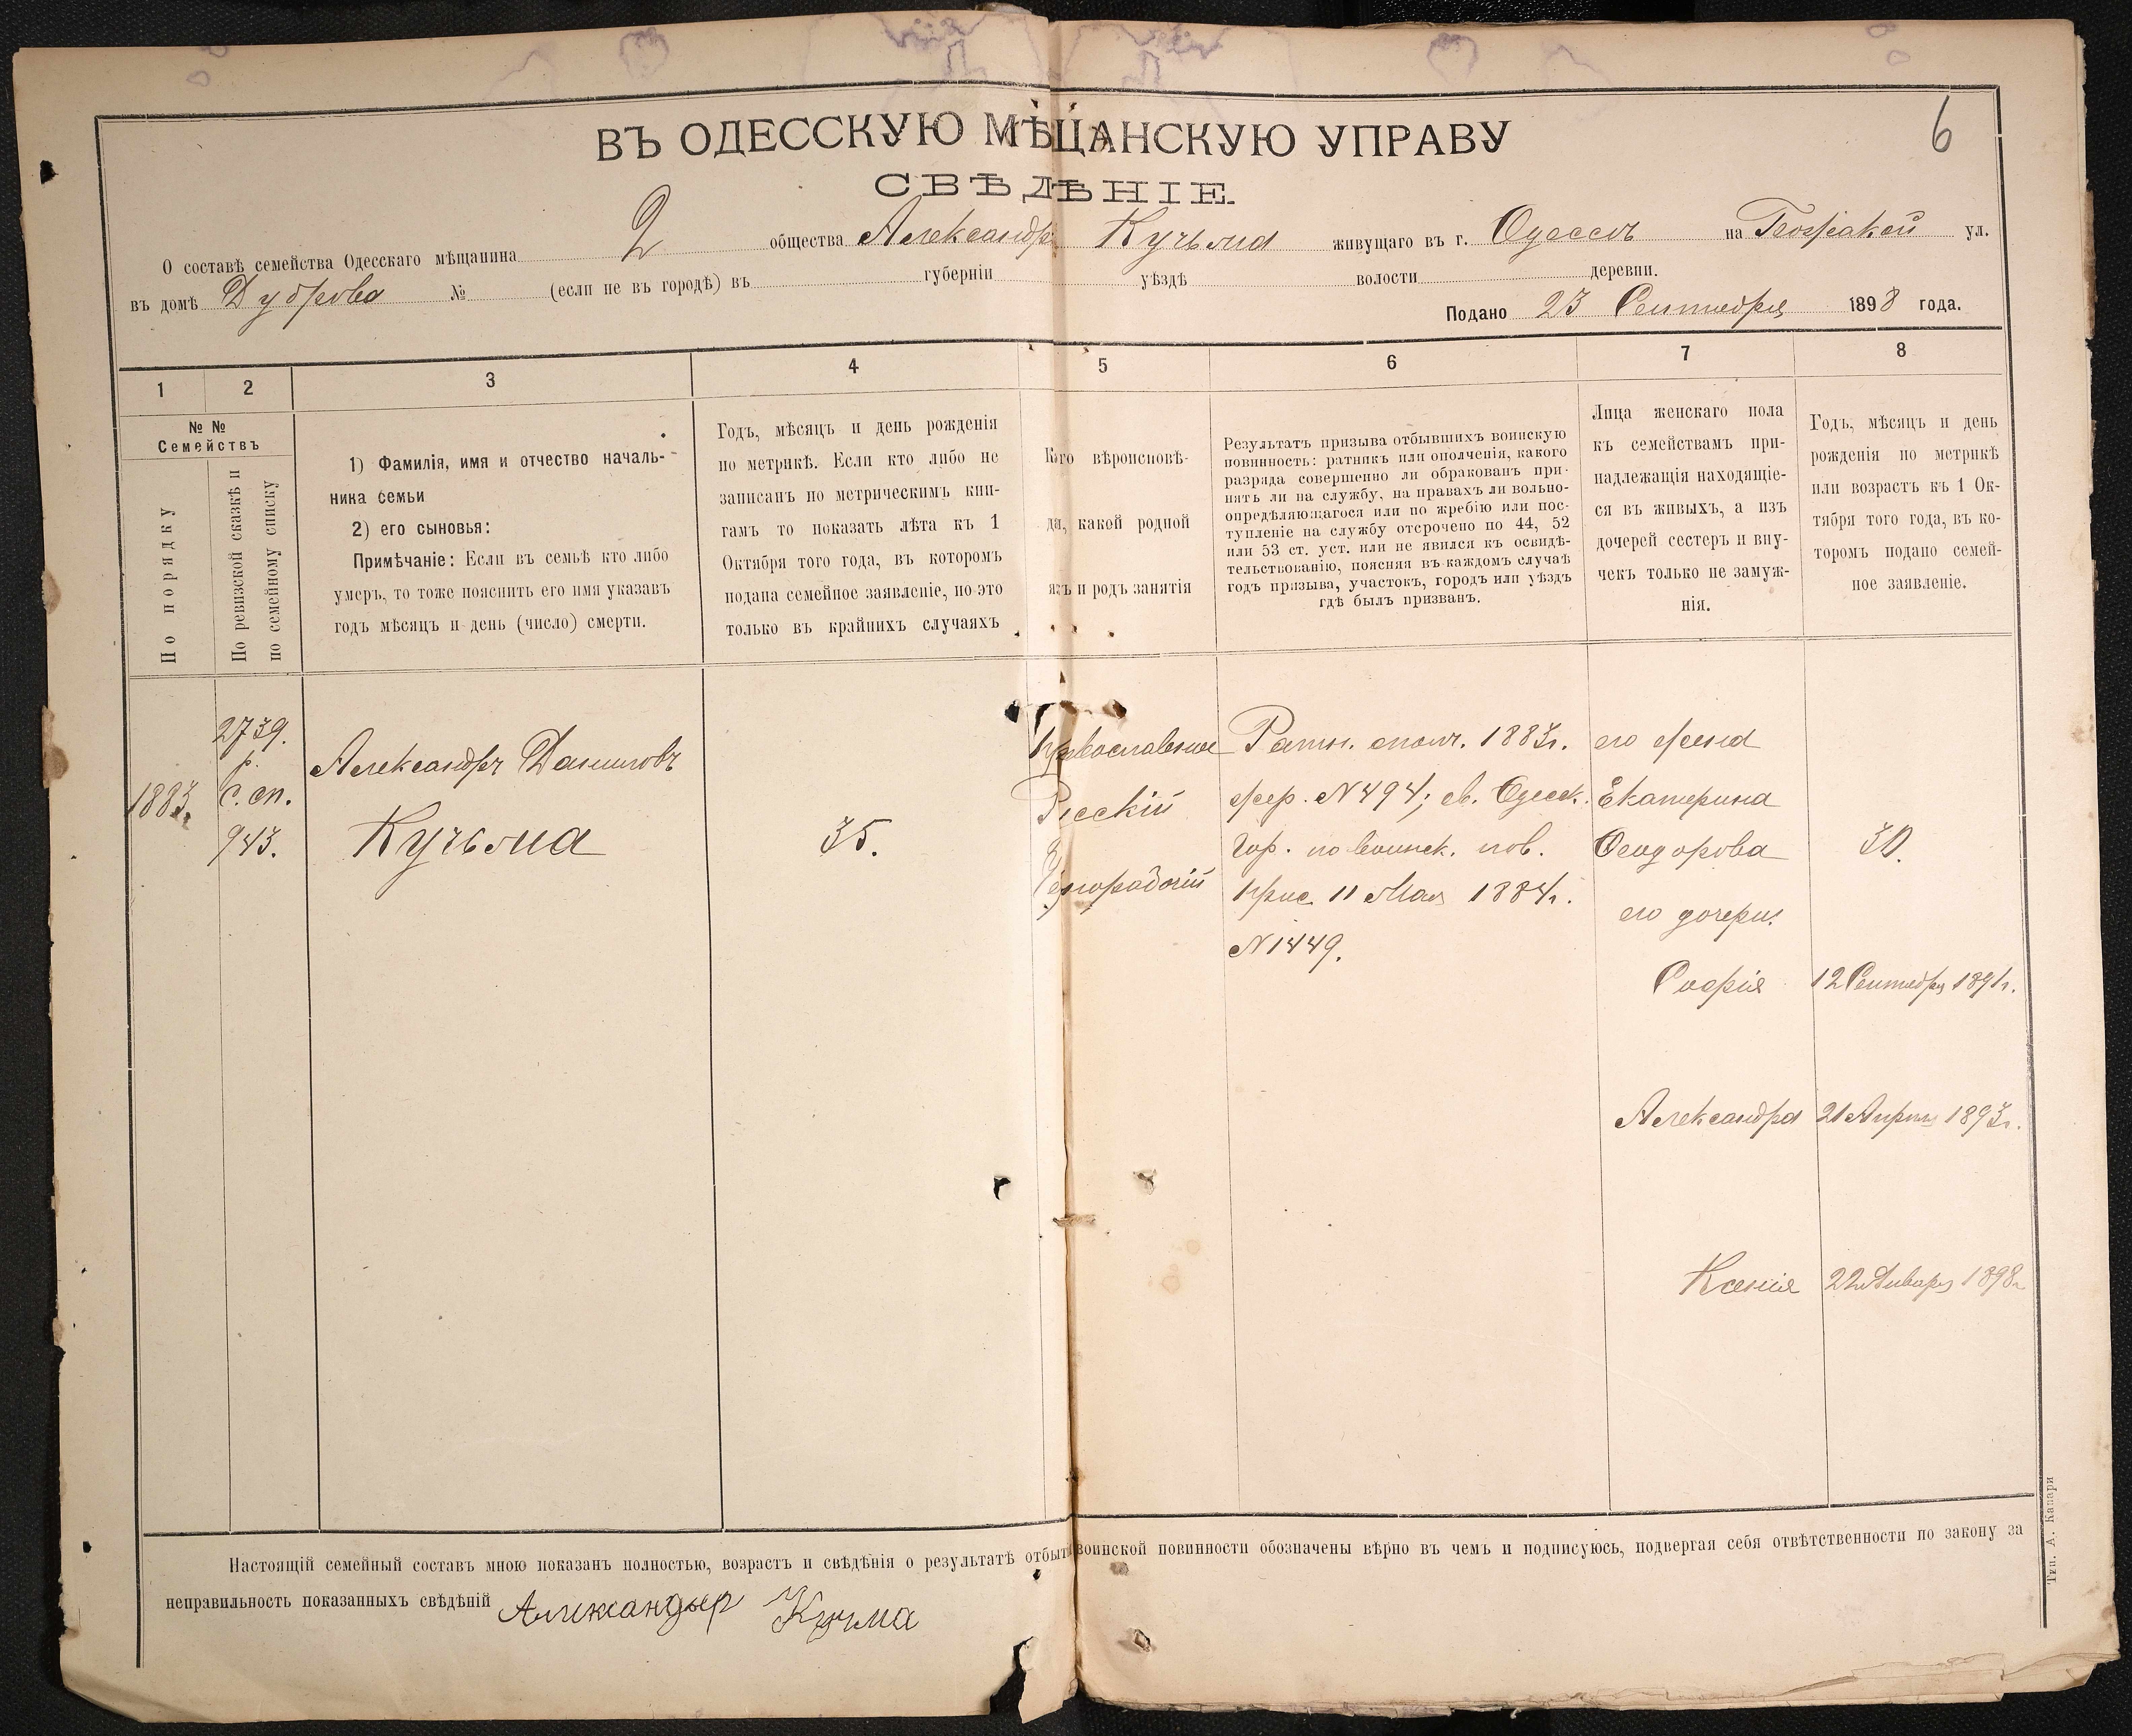 6
ВЪ ОДЕССКУЮ МѢЩАНСКУЮ УПРАВУ
СВѢДѢНІЕ.
О составѣ семейства Одесскаго мѣщанина 2 общества Александр Кучьма живущаго въ г. Одессѣ на ул.
въ домѣ Дуброва № (если не въ городѣ) въ губерніи уѣздѣ волости деревни.
Подано 23 Сентября 1898 года.
1 2 3 4 5 6 7 8
№ №
Семействъ
По порядку
По ревизской сказкѣ и
по семейному списку
1) Фамилія, имя и отчество началь-
ника семьи
2) его сыновья:
Примѣчаніе: Если въ семьѣ кто либо
умеръ, то тоже пояснить его имя указавъ
годъ мѣсяцъ и день (число) смерти.
Годъ, мѣсяцъ и день рожденія
по метрикѣ. Если кто либо не
записанъ по метрическимъ кни-
гамъ то показать лѣта къ 1
Октября того года, въ которомъ
подана семейное заявленіе, но это
только въ крайнихъ случаяхъ
Кого вѣроисповѣ-
да, какой родной
языкъ и родъ занятія
Результатъ призыва отбывшихъ воинскую
повинность: ратникъ или ополченія, какого
разряда совершенно ли обракованъ при-
нятъ ли на службу, на правахъ ли вольно-
опредѣляющагося или по жребію или пос-
тупленіе на службу отсрочено по 44, 52
или 53 ст. уст. или не явился къ освидѣ-
тельствованію, поясняя въ каждомъ случаѣ
годъ призыва, участокъ, городъ или уѣздъ
гдѣ былъ призванъ.
Лица женскаго пола
къ семействамъ при-
надлежащія находящіе-
ся въ живыхъ, а изъ
дочерей сестеръ и вну-
чекъ только не замуж-
нія.
Годъ, мѣсяцъ и день
рожденія по метрикѣ
или возрастъ къ 1 Ок-
тября того года, въ ко-
торомъ подано семей-
ное заявленіе.
1883г
2739.
р.
с. сп.
943.
Александръ Даниловъ
Кучьма
35.
Православное
Русскій
Чернорабочій
Ратн. ополч. 1883г.
жер. N 494; св. Одесск.
Гор. по воинск. пов.
прис. 11 Мая 1884г.
N 1449.
его жена
Екатерина
Феодорова 30.
его дочери:
Софія 12 Сентября 1891г.
Александра 21 Апрѣля 1893г.
Ксенія 22 Января 1898г
Настоящій семейный составъ мною показанъ полностью, возрастъ и свѣдѣнія о результатѣ отбытія воинской повинности обозначены вѣрно въ чемъ и подписуюсь, подвергая себя отвѣтственности по закону за
неправильность показанныхъ свѣдѣній Александыр Кучма
Тип. А. Капари